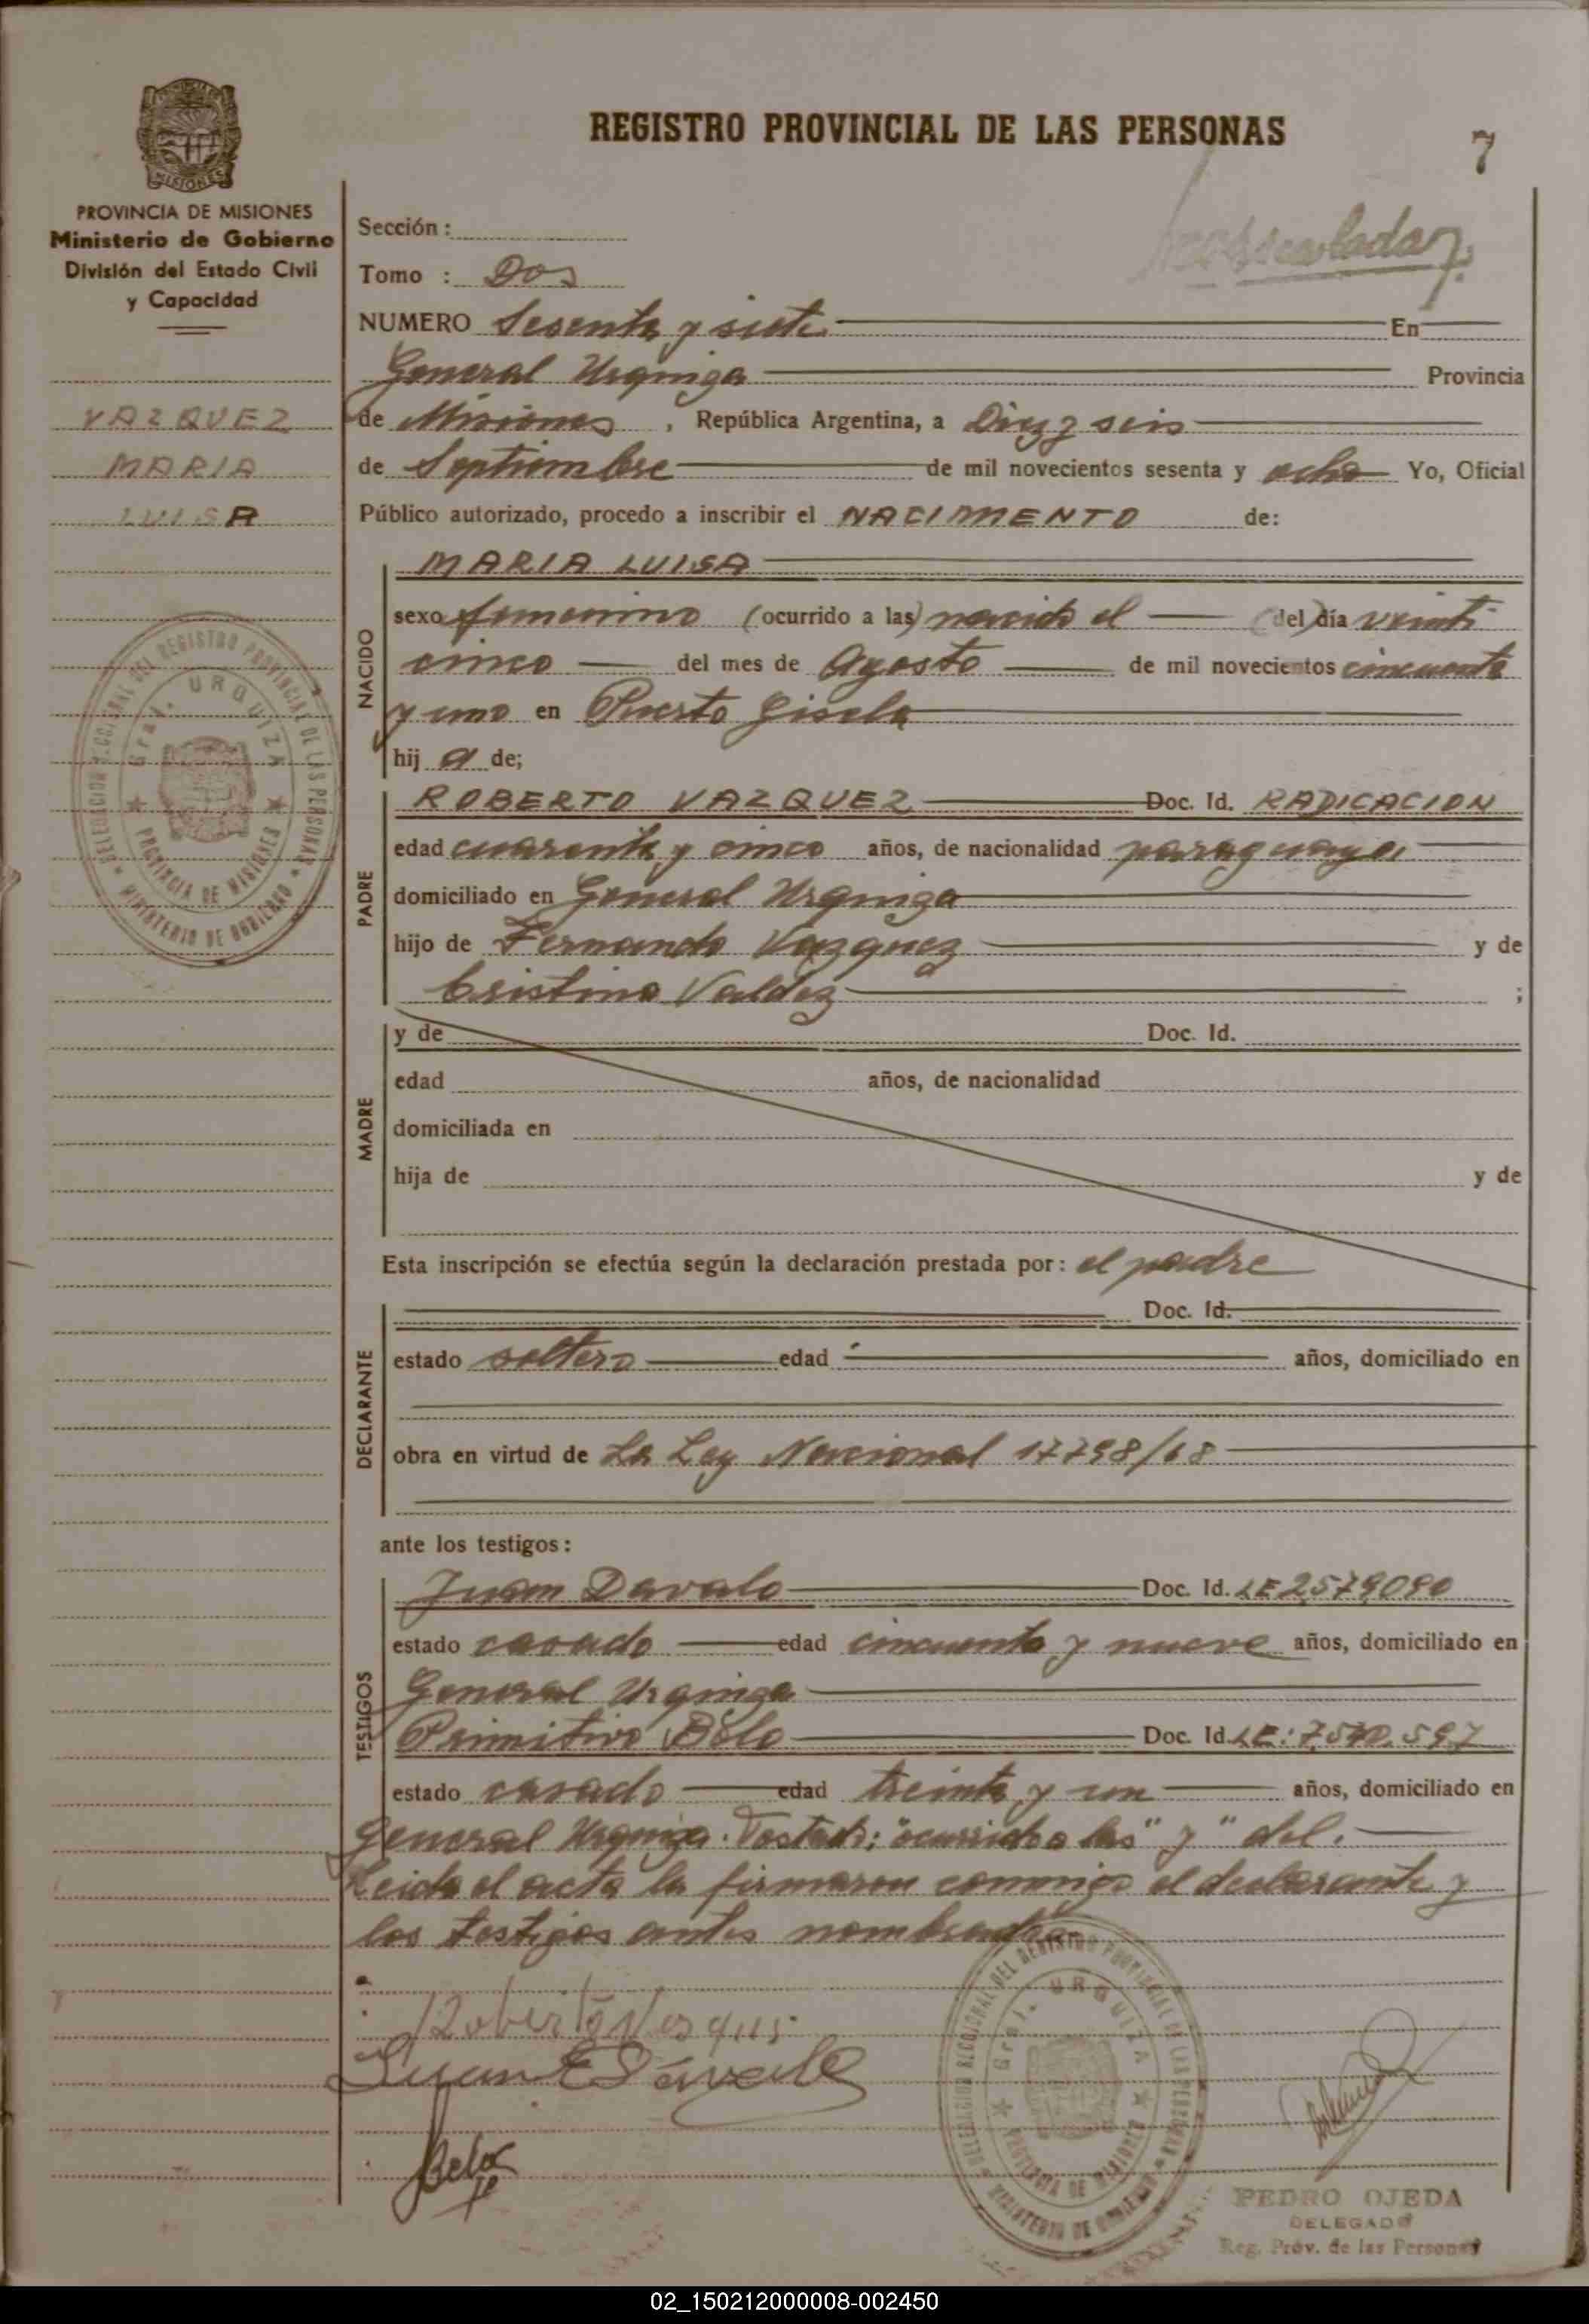 REGISTRO PROVINCIAL DE LAS PERSONAS
7
MISIONES
PROVINCIA DE MISIONES
Ministerio de Gobierno
División del Estado Civil
y Capacidad
VAZQUEZ
MARIA
LUISA
Sección :
Tomo : Dos
NUMERO Sesenta y siete En
General Urquiza Provincia
de Misiones, República Argentina, a Diez y seis
de Septiembre de mil novecientos sesenta y ocho Yo, Oficial
Público autorizado, procedo a inscribir el NACIMIENTO de:
NACIDO
MARIA LUISA
sexo femenino (ocurrido a las) nacida el (del) día veinti
cinco del mes de Agosto de mil novecientos cincuenta
y uno en Puerto Gisela
hij a de;
PADRE
ROBERTO VAZQUEZ Doc. Id. RADICACION
edad cuarenta y cinco años, de nacionalidad paraguaya
domiciliado en General Urquiza
hijo de Fernando Vazquez y de
Cristina Valdez ;
MADRE
y de Doc. Id.
edad años, de nacionalidad
domiciliada en
hija de y de
Esta inscripción se efectúa según la declaración prestada por: el padre
DECLARANTE
Doc. Id.
estado soltero edad años, domiciliado en
obra en virtud de La Ley Nacional 17798/68
ante los testigos:
TESTIGOS
Juan Davalo Doc. Id. LE 2,579,090
estado casado edad cincuenta y nueve años, domiciliado en
General Urquiza
Primitivo Belo Doc. Id. LE: 7,540,597
estado casado edad treinta y un años, domiciliado en
General Urquiza. Testado: "ocurrido a las" y "del.
Leida el acta la firmaron conmigo el declarante y
los testigos antes nombrados
Roberto Vasques
Juan Davalo
Belo
DELEGACION REGIONAL DEL REGISTRO PROVINCIAL DE LAS PERSONAS
Gral. URQUIZA
PROVINCIA DE MISIONES
MINISTERIO DE GOBIERNO
PEDRO OJEDA
DELEGADO
Reg. Prov. de las Personas
02_150212000008-002450